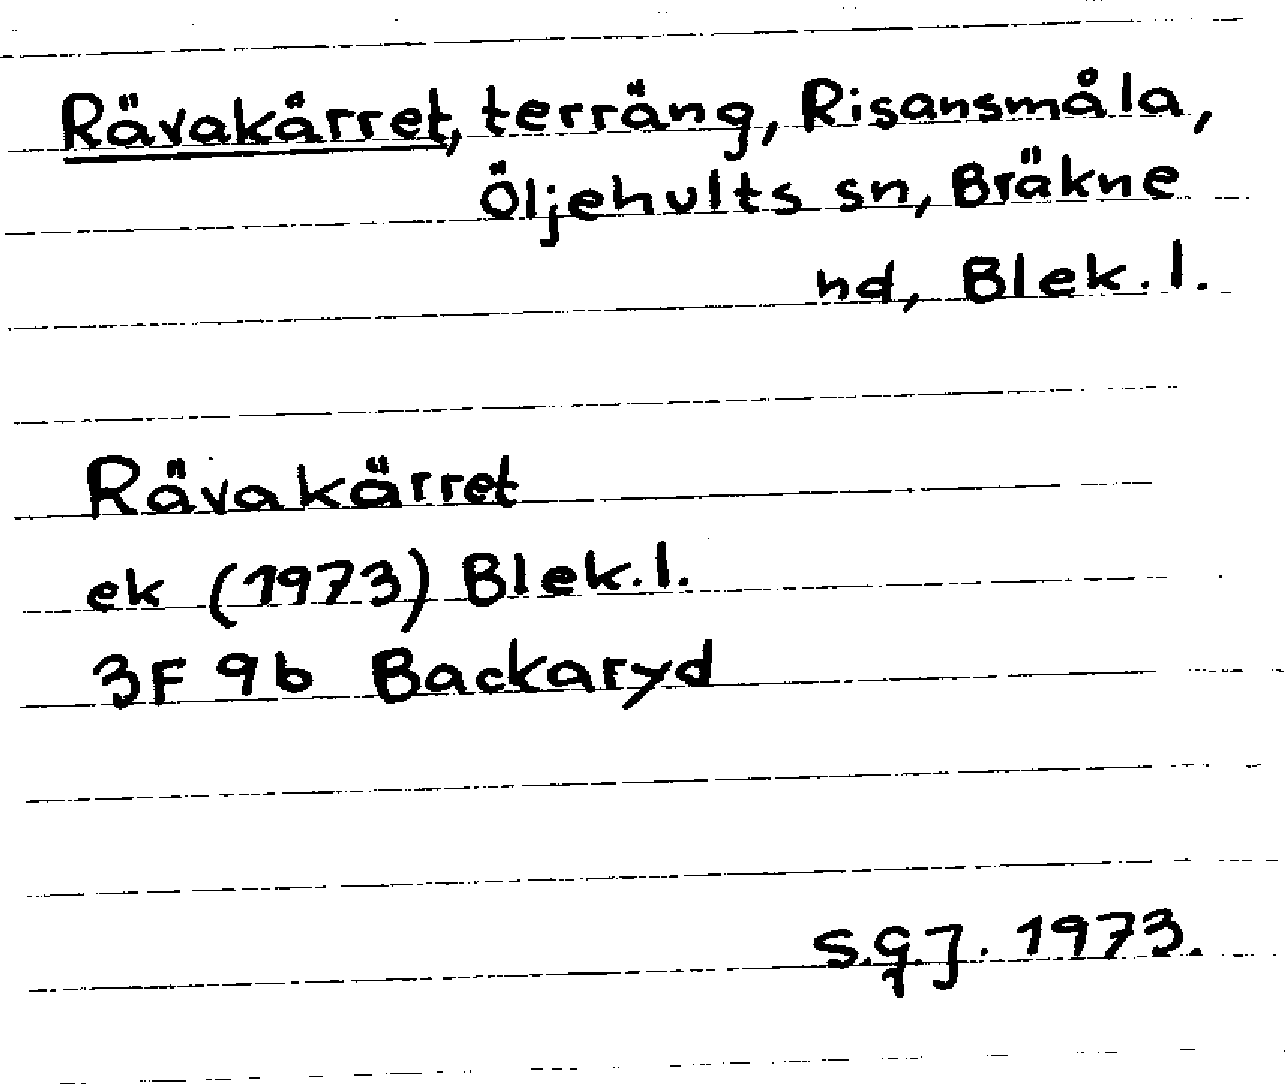 Rävakärret, terräng, Risansmåla,
Öljehults sn, Bräkne
hd, Blek.l.
Rävakärret
ek (1973) Blek.l.
3F 9b Backaryd
S.G.J. 1973.